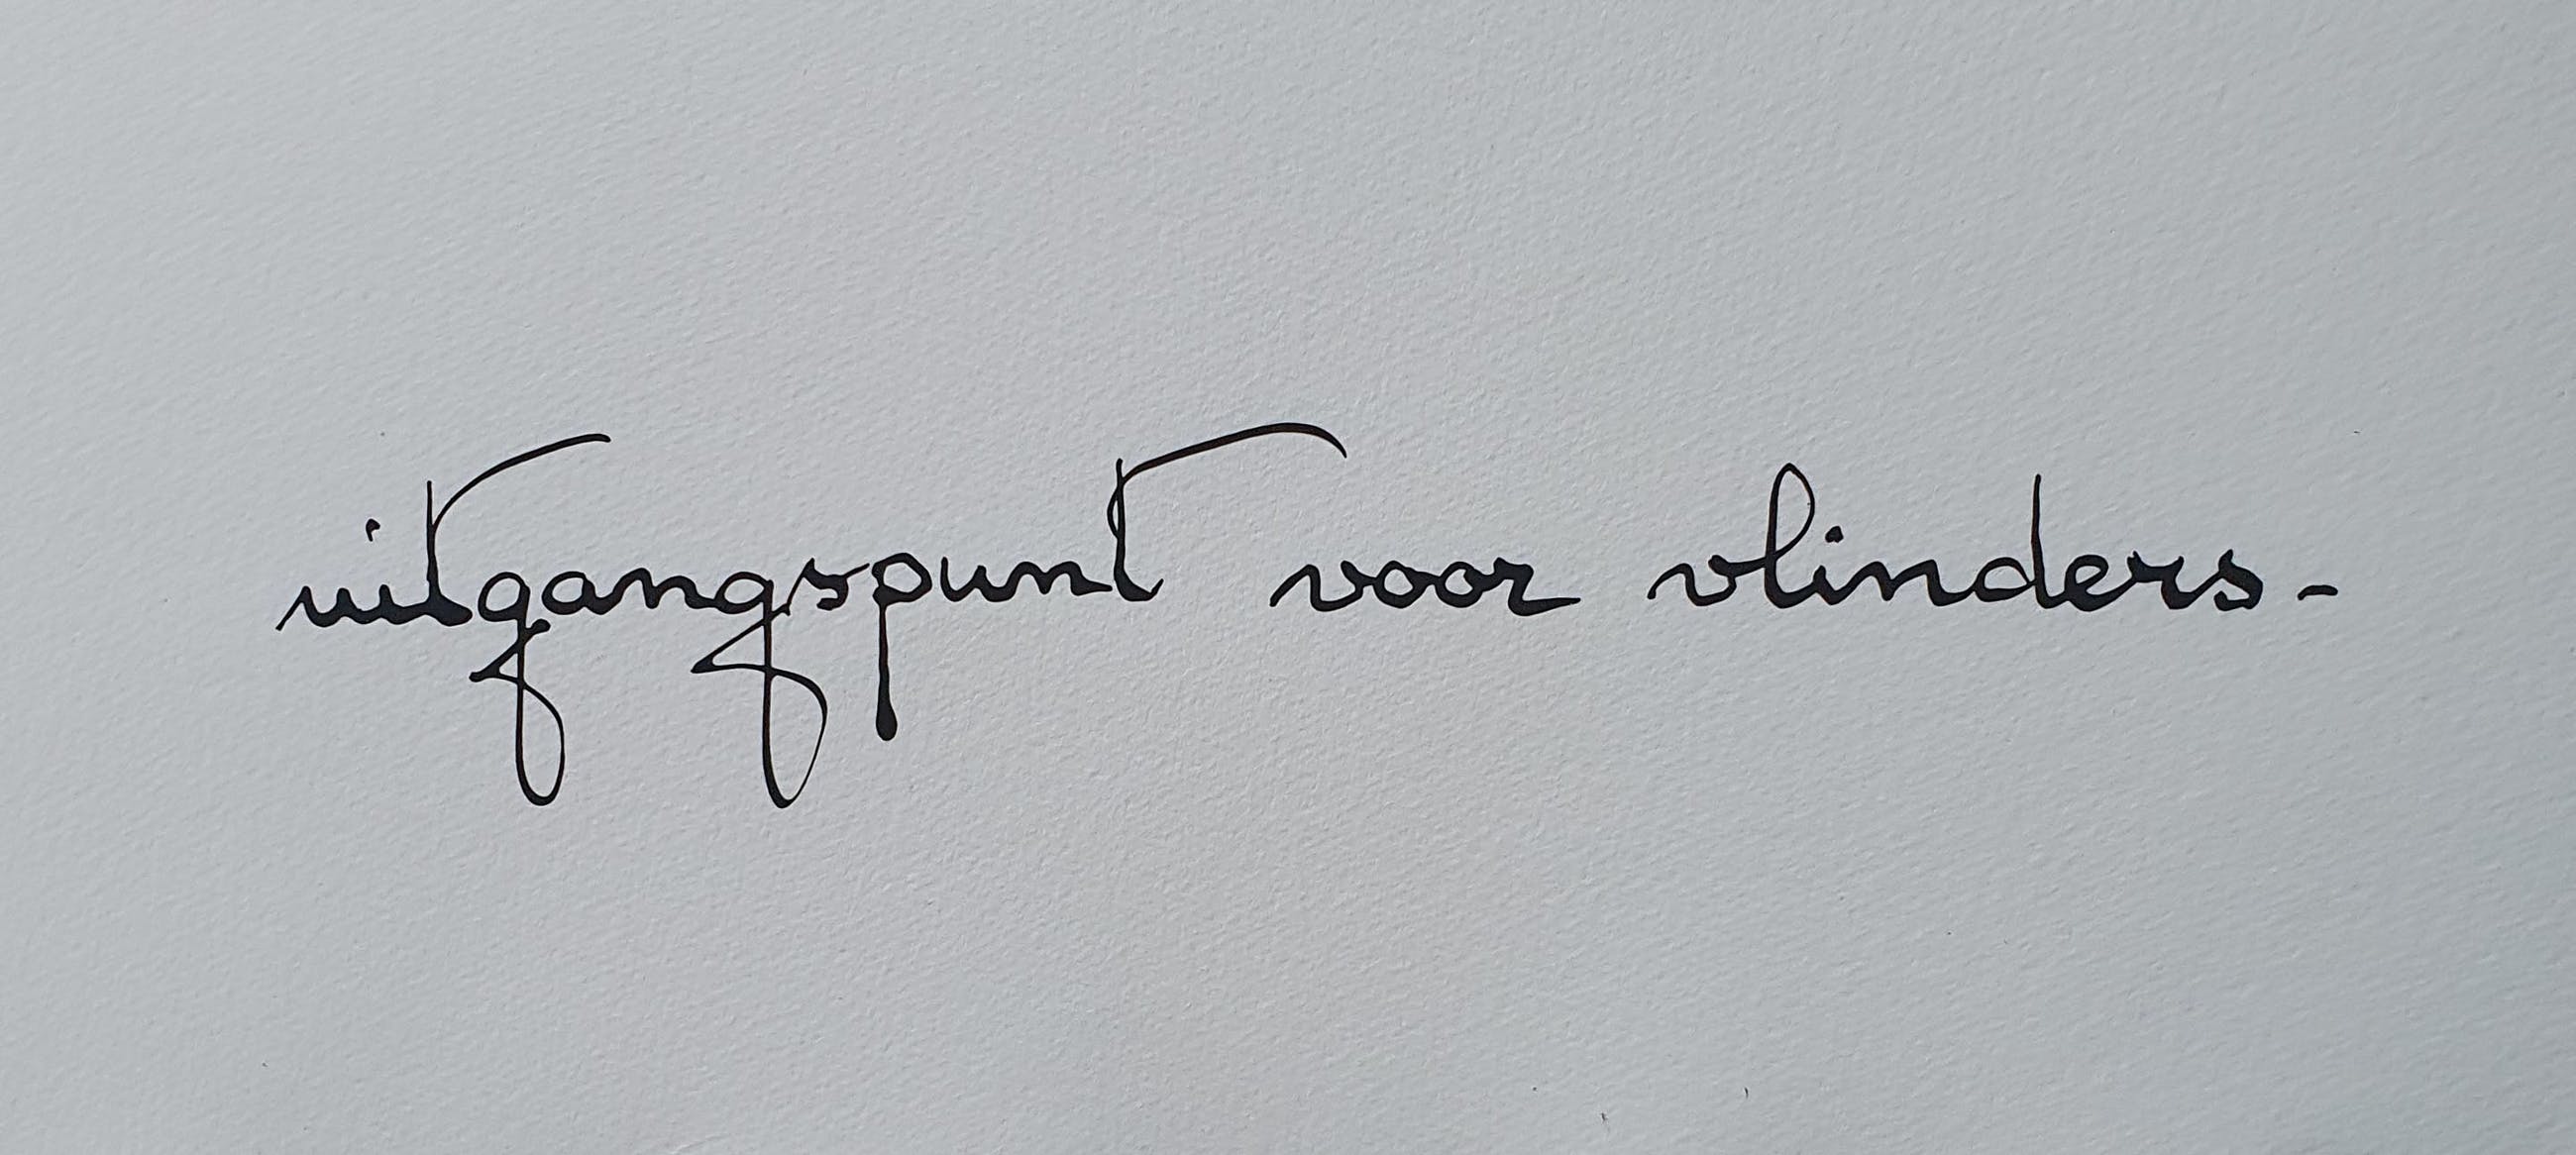 uitgangspunt voor vlinders.